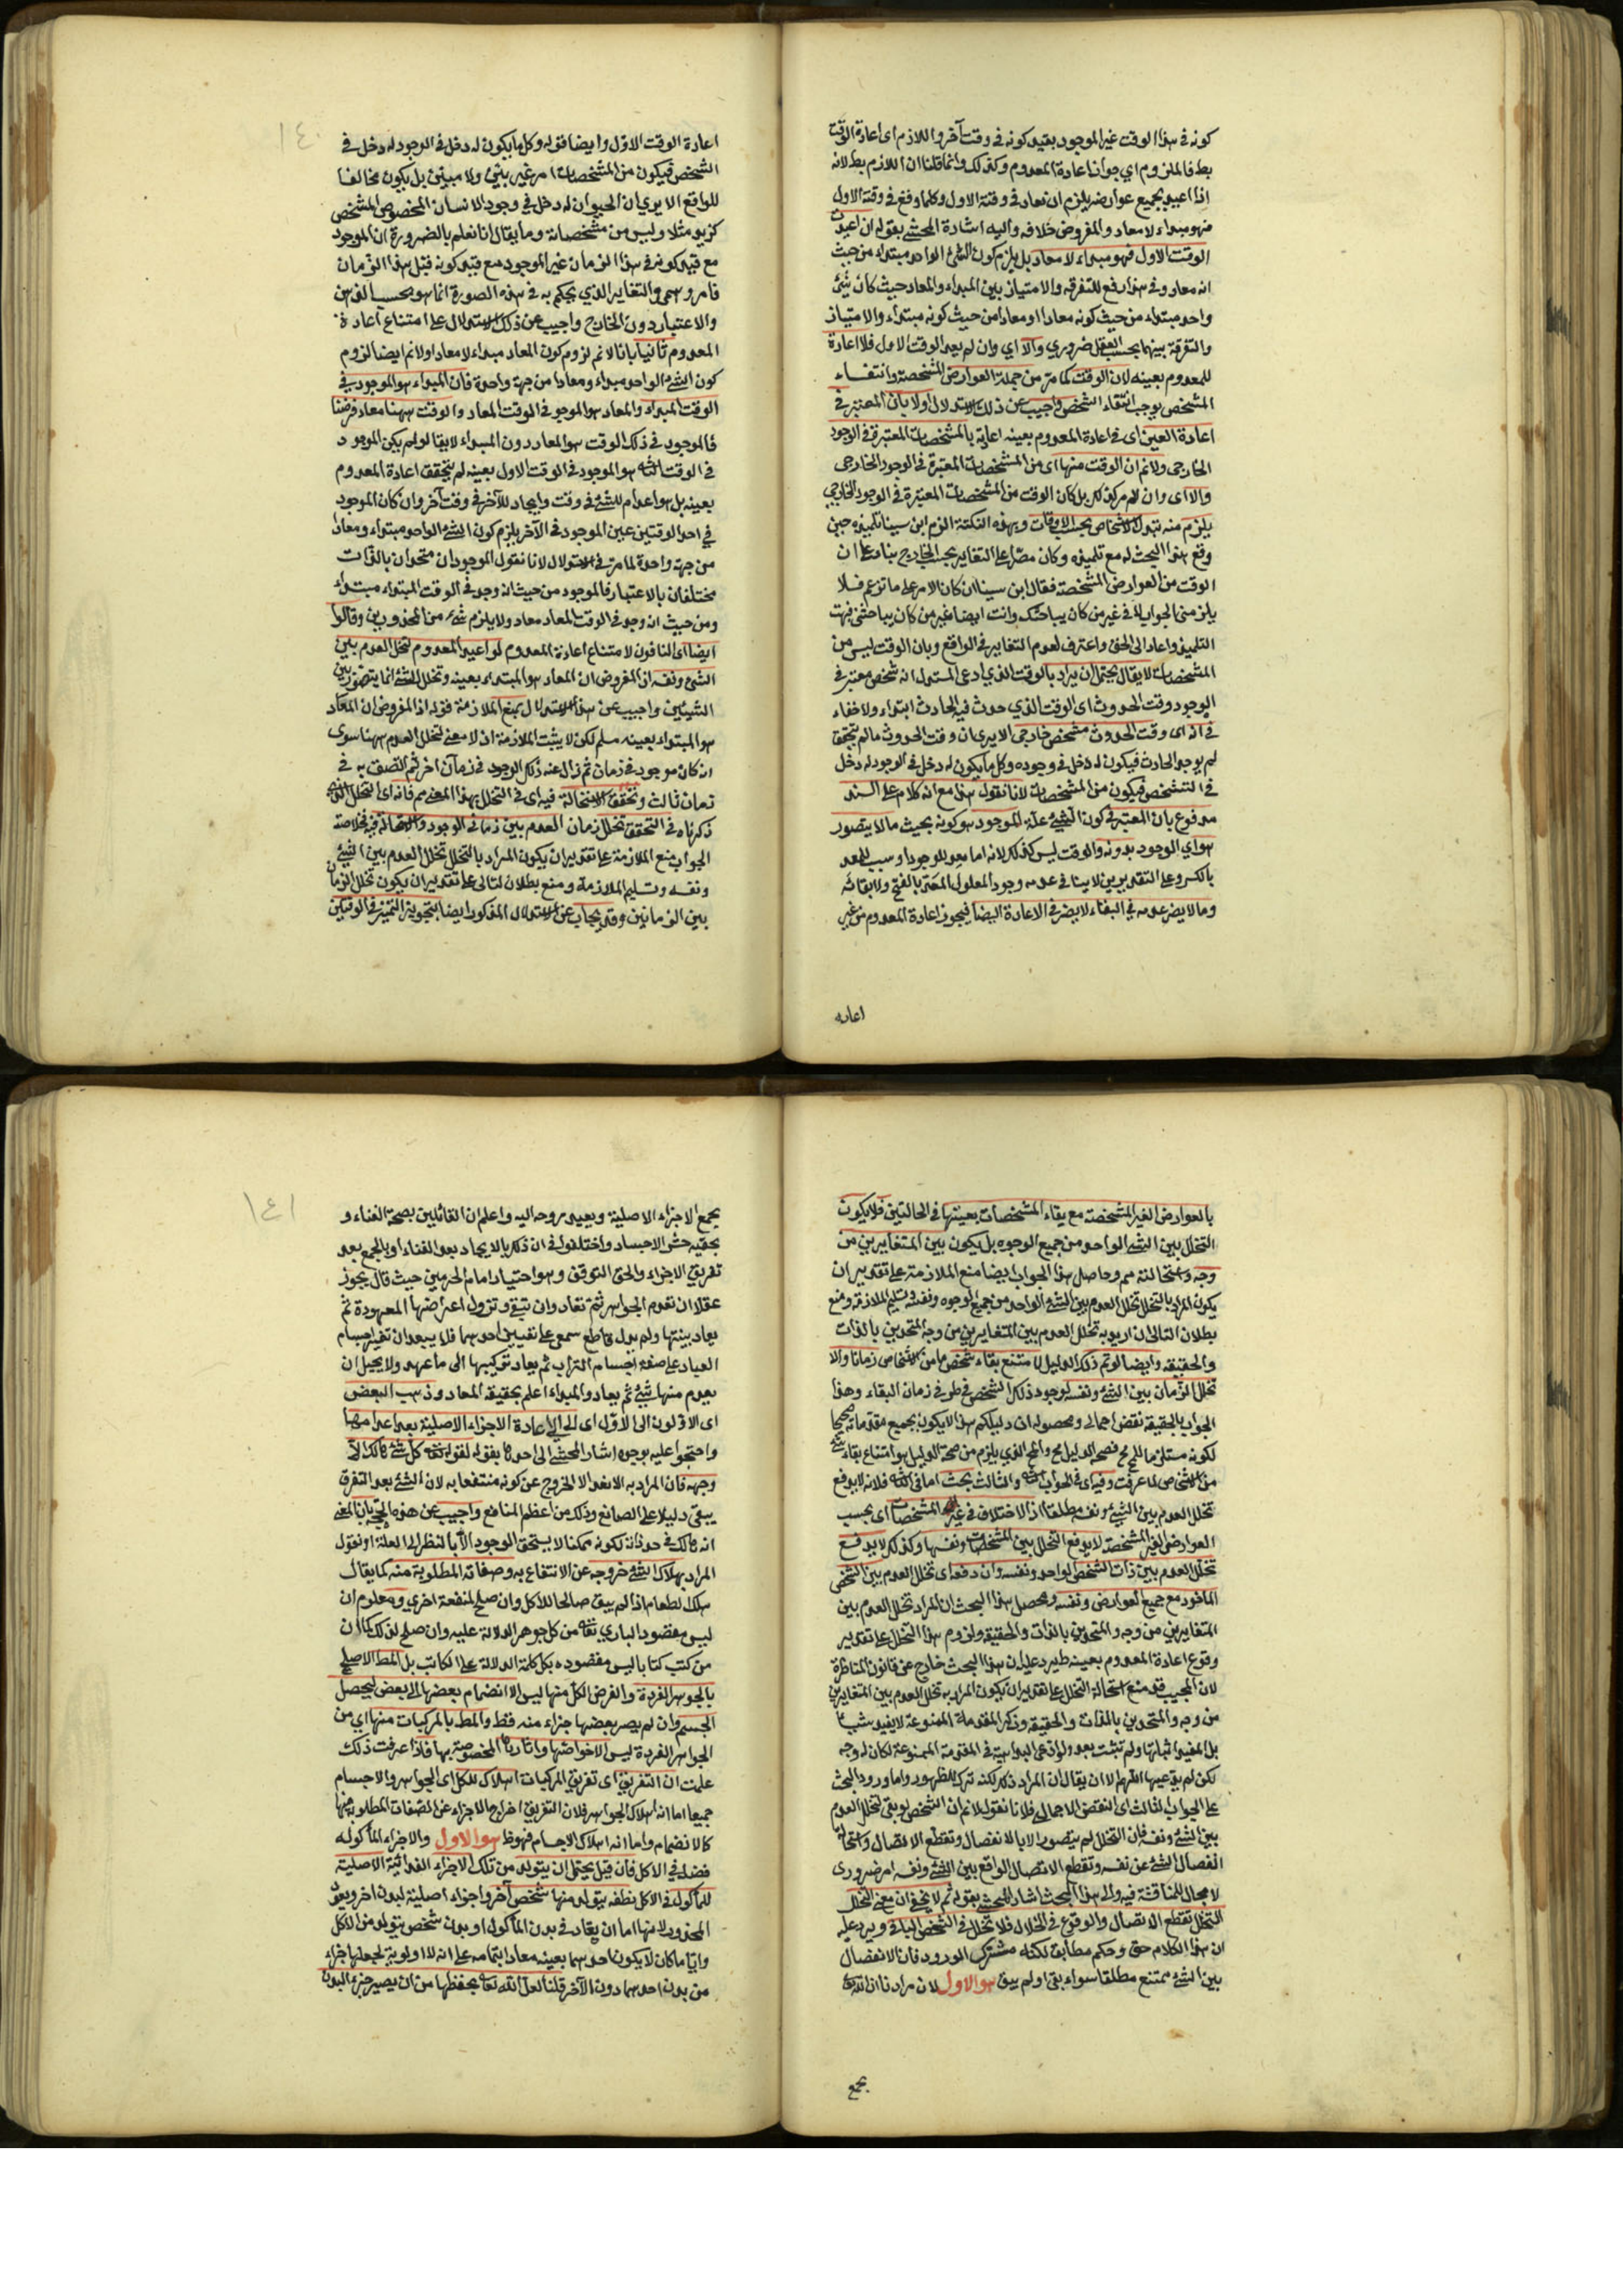 كونه في هذا الوقت غير الموجود بقيد كونه في وقت آخر واللازم اى اعادة الوقت
بط فالملزوم اي جواز اعادة المعدوم وكذلك وانما قلنا ان اللازم بط لانه
اذا اعيد بجميع عوارضه يلزم ان يعاد في وقته الاول وكلما وقع في وقته الاول
فهو مبداء لا معاد والمفروض خلافه واليه اشارة المحشي بقوله ان اعيد
الوقت الاول فهو مبداء لا معاد بل يلزم كون الشئ الواحد مبتداء من حيث
انه معاد وفي هذا رفع للتفرقه والامتياز بين المبداء والمعاد حيث كان شئ
واحد مبتداء من حيث كونه معادا او معادا من حيث كونه مبتداء والامتياز
والتفرقة بينهما بحسب العقل ضروري والا اي وان لم يعد الوقت الاول فلا اعادة
للمعدوم بعينه لان الوقت كما مر من جملة العوارض المشخصة وانتفاء
المشخص يوجب انتفاء الشخص واجيب عن ذلك الاستدلال اولا بان المعتبر في
اعادة العين اى في اعادة المعدوم بعينه اعادته بالمشخصات المعتبرة في الوجود
الخارجى ولانم ان الوقت منها اى من المشخصات المعتبرة في الوجود الخارجى
والا اى وان لم يكن كذلك بل كان الوقت من المشخصات المعتبرة في الوجود الخارجي
يلزم منه تبدل الاشخاص بحسب الاوقات وبهذه النكتة الزم ابن سينا تلميذه حين
وقع هذا البحث له مع تلميذه وكان مصرا على التغاير بحسب الخارج بناء على ان
الوقت من العوارض المشخصة فقال ابن سينا ان كان الامر على ما تزعم فلا
يلزمنى الجواب لانى غير من كان يباحثك وانت ايضا غير من كان يباحثنى فبهت
التلميذ وعاد الى الحق واعترف بعدم التغاير في الواقع وبان الوقت ليس من
المشخصات لا يقال يحتمل ان يراد بالوقت الذي ادعى المستدل انه شخص معتبر في
الوجود وقت الحدوث اى الوقت الذي حدث فيه الحادث ابتداء ولا خفاء
في انه اى وقت الحدوث مشخص خارجى الا يرى ان وقت الحدوث ما لم يتحقق
لم يوجد الحادث فيكون له دخل في وجوده وكل ما يكون له دخل في الوجود له دخل
في التشخص فيكون من المشخصات لانا نقول هذا مع انه كلام على السند
مدفوع بان المعتبر في كون الشيئ علة الموجود هو كونه بحيث ما لا يتصور
هو اي الوجود بدونه والوقت ليس كذلك لانه اما معد للوجود او سبب للمعد
بالكسر وعلى التقديرين لا ينافى عدمه وجود المعلول المعد بالفتح ولا بقائه
وما لا يضر عدمه في البقاء لا يضر في الاعادة ايضا فيجوز اعادة المعدوم من غير
اعاده
١٤٠
اعادة الوقت الاول وايضا قوله وكل ما يكون له دخل في الوجود له دخل في
الشخص فيكون من المشخصات امر غير بيّن ولا مبيّن بل يكون مخالفا
للواقع الا يرى ان الحيوان له دخل في وجود الانسان المخصوص المشخص
كزيد مثلا وليس من مشخصاته وما يقال انا نعلم بالضرورة ان الموجود
مع قيد كونه في هذا الزمان غير الموجود مع قيد كونه قبل هذا الزمان
فامر وهمى والتغاير الذي يحكم به في هذه الصورة انما هو بحسب الذهن
والاعتبار دون الخارج واجيب عن ذلك الاستدلال على امتناع اعادة
المعدوم ثانيا بانا لانم لزوم كون المعاد مبداء لا معادا ولانم ايضا لزوم
كون الشئ الواحد مبداء ومعادا من جهة واحدة فان المبداء هو الموجود في
الوقت المبداء والمعاد هو الموجود في الوقت المعاد والوقت ههنا معاد فرضا
فالموجود في ذلك الوقت هو المعاد دون المبداء لا يقال لو لم يكن الموجود
في الوقت الثاني هو الموجود في الوقت الاول بعينه لم يتحقق اعادة المعدوم
بعينه بل هو اعدام للشئ في وقت وايجاد للآخر في وقت آخر وان كان الموجود
في احد الوقتين عين الموجود في الآخر يلزم كون الشئ الواحد مبتداء ومعادا
من جهة واحدة لما مر في الاستدلال لانا نقول الموجودان متحدان بالذات
مختلفان بالاعتبار فالموجود من حيث انه وجد في الوقت المبتداء مبتداء
ومن حيث انه وجد في الوقت المعاد معاد ولا يلزم شئ من المحذورين وقالوا
ايضا اى النافون لامتناع اعادة المعدوم لو اعيد المعدوم لتخلل العدم بين
الشئ ونفسه اذ المفروض ان المعاد هو المبتداء بعينه وتخلل الشئ انما يتصور بين
الشيئين واجيب عن هذا الاستدلال بمنع الملازمة قوله اذ المفروض ان المعاد
هو المبتداء بعينه مسلم لكن لا يثبت الملازمة اذ لا معنى لتخلل العدم ههنا سوى
انه كان موجود في زمان ثم زال عنه ذلك الوجود في زمان آخر ثم اتصف به في
زمان ثالث وتحقق الاستحالة فيه اى في التخلل بهذا المعنى مم فانه اى التخلل الذي
ذكرناه في التحقق تخلل زمان العدم بين زمانى الوجود ولا استحالة فيه خلاصة
الجواب منع الملازمة على تقدير ان يكون المراد بالتخلل تخلل العدم بين الشئ
ونفسه وتسليم الملازمة ومنع بطلان التالى على تقدير ان يكون تخلل الزمان
بين الزمانين وقد يجاب عن الاستدلال المذكور ايضا بتجويز التميز في الوقتين
بالعوارض الغير المشخصة مع بقاء المشخصات بعينها في الحالتين فلا يكون
التخلل بين الشئ الواحد من جميع الوجوه بل يكون بين المتغايرين من
وجه واستحالته مم وحاصل هذا الجواب ايضا منع الملازمة على تقدير ان
يكون المراد بالتخلل تخلل العدم بين الشئ الواحد من جميع الوجوه ونفسه وتسليم الملازمة ومنع
بطلان التالى ان اريد به تخلل العدم بين المتغايرين من وجه المتحدين بالذات
والحقيقه وايضا لو تم ذلك الدليل لامتنع بقاء شخص ما من الاشخاص زمانا والا
تخلل الزمان بين الشئ ونفسه لوجود ذلك الشخص في طرفي زمان البقاء وهذا
الجواب بالحقيقة نقض اجمالى ومحصوله ان دليلكم هذا لا يكون بجميع مقدماته صحيحا
لكونه مستلزما للمح فصحة الدليل مح والمح الذي يلزم من صحة الدليل هو امتناع بقاء شئ
من الاشخاص لما عرفت وفيه اى في الجواب الثاني والثالث بحث اما في الثاني فلانه لا يدفع
تخلل العدم بين الشيئ ونفسه مطلقا اذ الاختلاف في غير المشخصات اى بحسب
العوارض الغير المشخصة لا يدفع التخلل بين المشخصات ونفسها وكذلك لا يدفع
تخلل العدم بين ذات الشخص الواحد ونفسه وان دفع اى تخلل العدم بين الشخص
الماخوذ مع جميع العوارض ونفسه ومحصل هذا البحث ان المراد تخلل العدم بين
المتغايرين من وجه والمتحدين بالذات والحقيقة ولزوم هذا التخلل على تقدير
وقوع اعادة المعدوم بعينه ظ يرد عليه ان هذا البحث خارج عن قانون المناظرة
لان المجيب قد منع استحالة التخلل على تقدير ان يكون المراد به تخلل العدم بين المتغايرين
من وجه والمتحدين بالذات والحقيقة وذكر المقدمة الممنوعة لا يفيد شيئا
بل المفيد اثباتها ولم تثبت بعد ولو ادعى البداهة في المقدمة الممنوعة لكان له وجه
لكن لم يدعيها اللهم الا ان يقال ان المراد ذلك لكنه ترك للظهور واما ورود البحث
على الجواب الثالث اى النقض الاجمالى فلانا نقول لانم ان الشخص لو بقى لتخلل العدم
بين الشئ ونفسه فان التخلل لم يتصور الا بالانفصال وتقطع الاتصال واستحالة
انفصال الشئ عن نفسه وتقطع الاتصال الواقع بين الشئ ونفسه امر ضرورى
لا مجال للمناقشة فيه والى هذا البحث اشار المحشي بقوله ثم لا يخفى ان معنى التخلل
التخلل تقطع الاتصال والوقوع في الخلال فلا تخلل في الشخص الباقى ويرد عليه
ان هذا الكلام حق وحكم مطابق لكنه مشترك الورود فان الانفصال
بين الشئ ممتنع مطلقا سواء بقى اولم يبق هو الاول لان مرادنا ان الله تعالى
يجمع
١٤١
يجمع الاجزاء الاصلية ويعيد روحه اليه واعلم ان القائلين بصحة الفناء و
بحقيه حشر الاجساد واختلفوا في ان ذلك بالايجاد بعد الفناء او بالجمع بعد
تفريق الاجزاء والحق التوقف وهو اختيار امام الحرمين حيث قال يجوز
عقلا ان تعدم الجواهر ثم تعاد وان تبقى وتزول اعراضها المعهودة ثم
يعاد بنيتها ولم يدل قاطع سمعى على تعيين احدهما فلا يبعد ان تغير اجسام
العباد على صفة اجسام التراب ثم يعاد تركيبها الى ما عهد ولا يحيل ان
يعدم منها شيئ ثم يعاد والمبداء اعلم بحقيقة المعاد وذهب البعض
اى الاولون الى الاول اى الى اعادة الاجزاء الاصلية بعد اعدامها
واحتجوا عليه بوجوه اشار المحشي الى احدها بقوله لقوله تعالى كل شئ هالك الا
وجهه فان المراد به الانعدام لا الخروج عن كونه منتفعا به لان الشئ بعد التفرق
يبقى دليلا على الصانع وذلك من اعظم المنافع واجيب عن هذه الحجة بان المعنى
انه هالك في حد ذاته لكونه ممكنا لا يستحق الوجود الا بالنظر الى العلة او نقول
المراد بهلاك الشئ خروجه عن الانتفاع به وصفاته المطلوبة منه كما يقال
هلك الطعام اذا لم يبق صالحا للاكل وان صلح لمنفعة اخرى ومعلوم ان
ليس مقصود البارى تعالى من كل جوهر الدلالة عليه وان صلح لذلك كما ان
من كتب كتابا ليس مقصوده بكل كلمة الدلالة على الكاتب بل المط الاصلى
بالجوهر الفردة والغرض لكل منها ليس الا انضمام بعضها الى بعض ليحصل
الجسم وان لم يصر بعضها جزاء منه فقط والمط بالمركبات منها اي من
الجواهر الفردة ليس الا خواصها واثارها المخصوصة بها فاذا عرفت ذلك
علمت ان التفريق اى تفريق المركبات اهلاك للكل اى الجواهر والاجسام
جميعا اما انه اهلاك الجواهر فلان التفريق اخراج الاجزاء عن الصفات المطلوبة منها
كالانضمام واما انه اهلاك الاجسام فهو ظ هو الاول والاجزاء المأكوله
فضلة في الاكل فان قيل يحتمل ان يتولد من تلك الاجزاء الغذائية الاصلية
للمأكول في الاكل نطفه يتولد منها شخص آخر واجزاء اصلية لبدن اخر ويعود
المحذور لانها اما ان يعاد في بدن المأكول او بدن شخص يتولد من الاكل
وايا ما كان لا يكون احدهما بعينه معادا بتمامه على انه لا اولوية لجعلها جزاء
من بدن احدهما دون الآخر قلنا لعل الله تعالى يحفظها من ان يصير جزء البدن